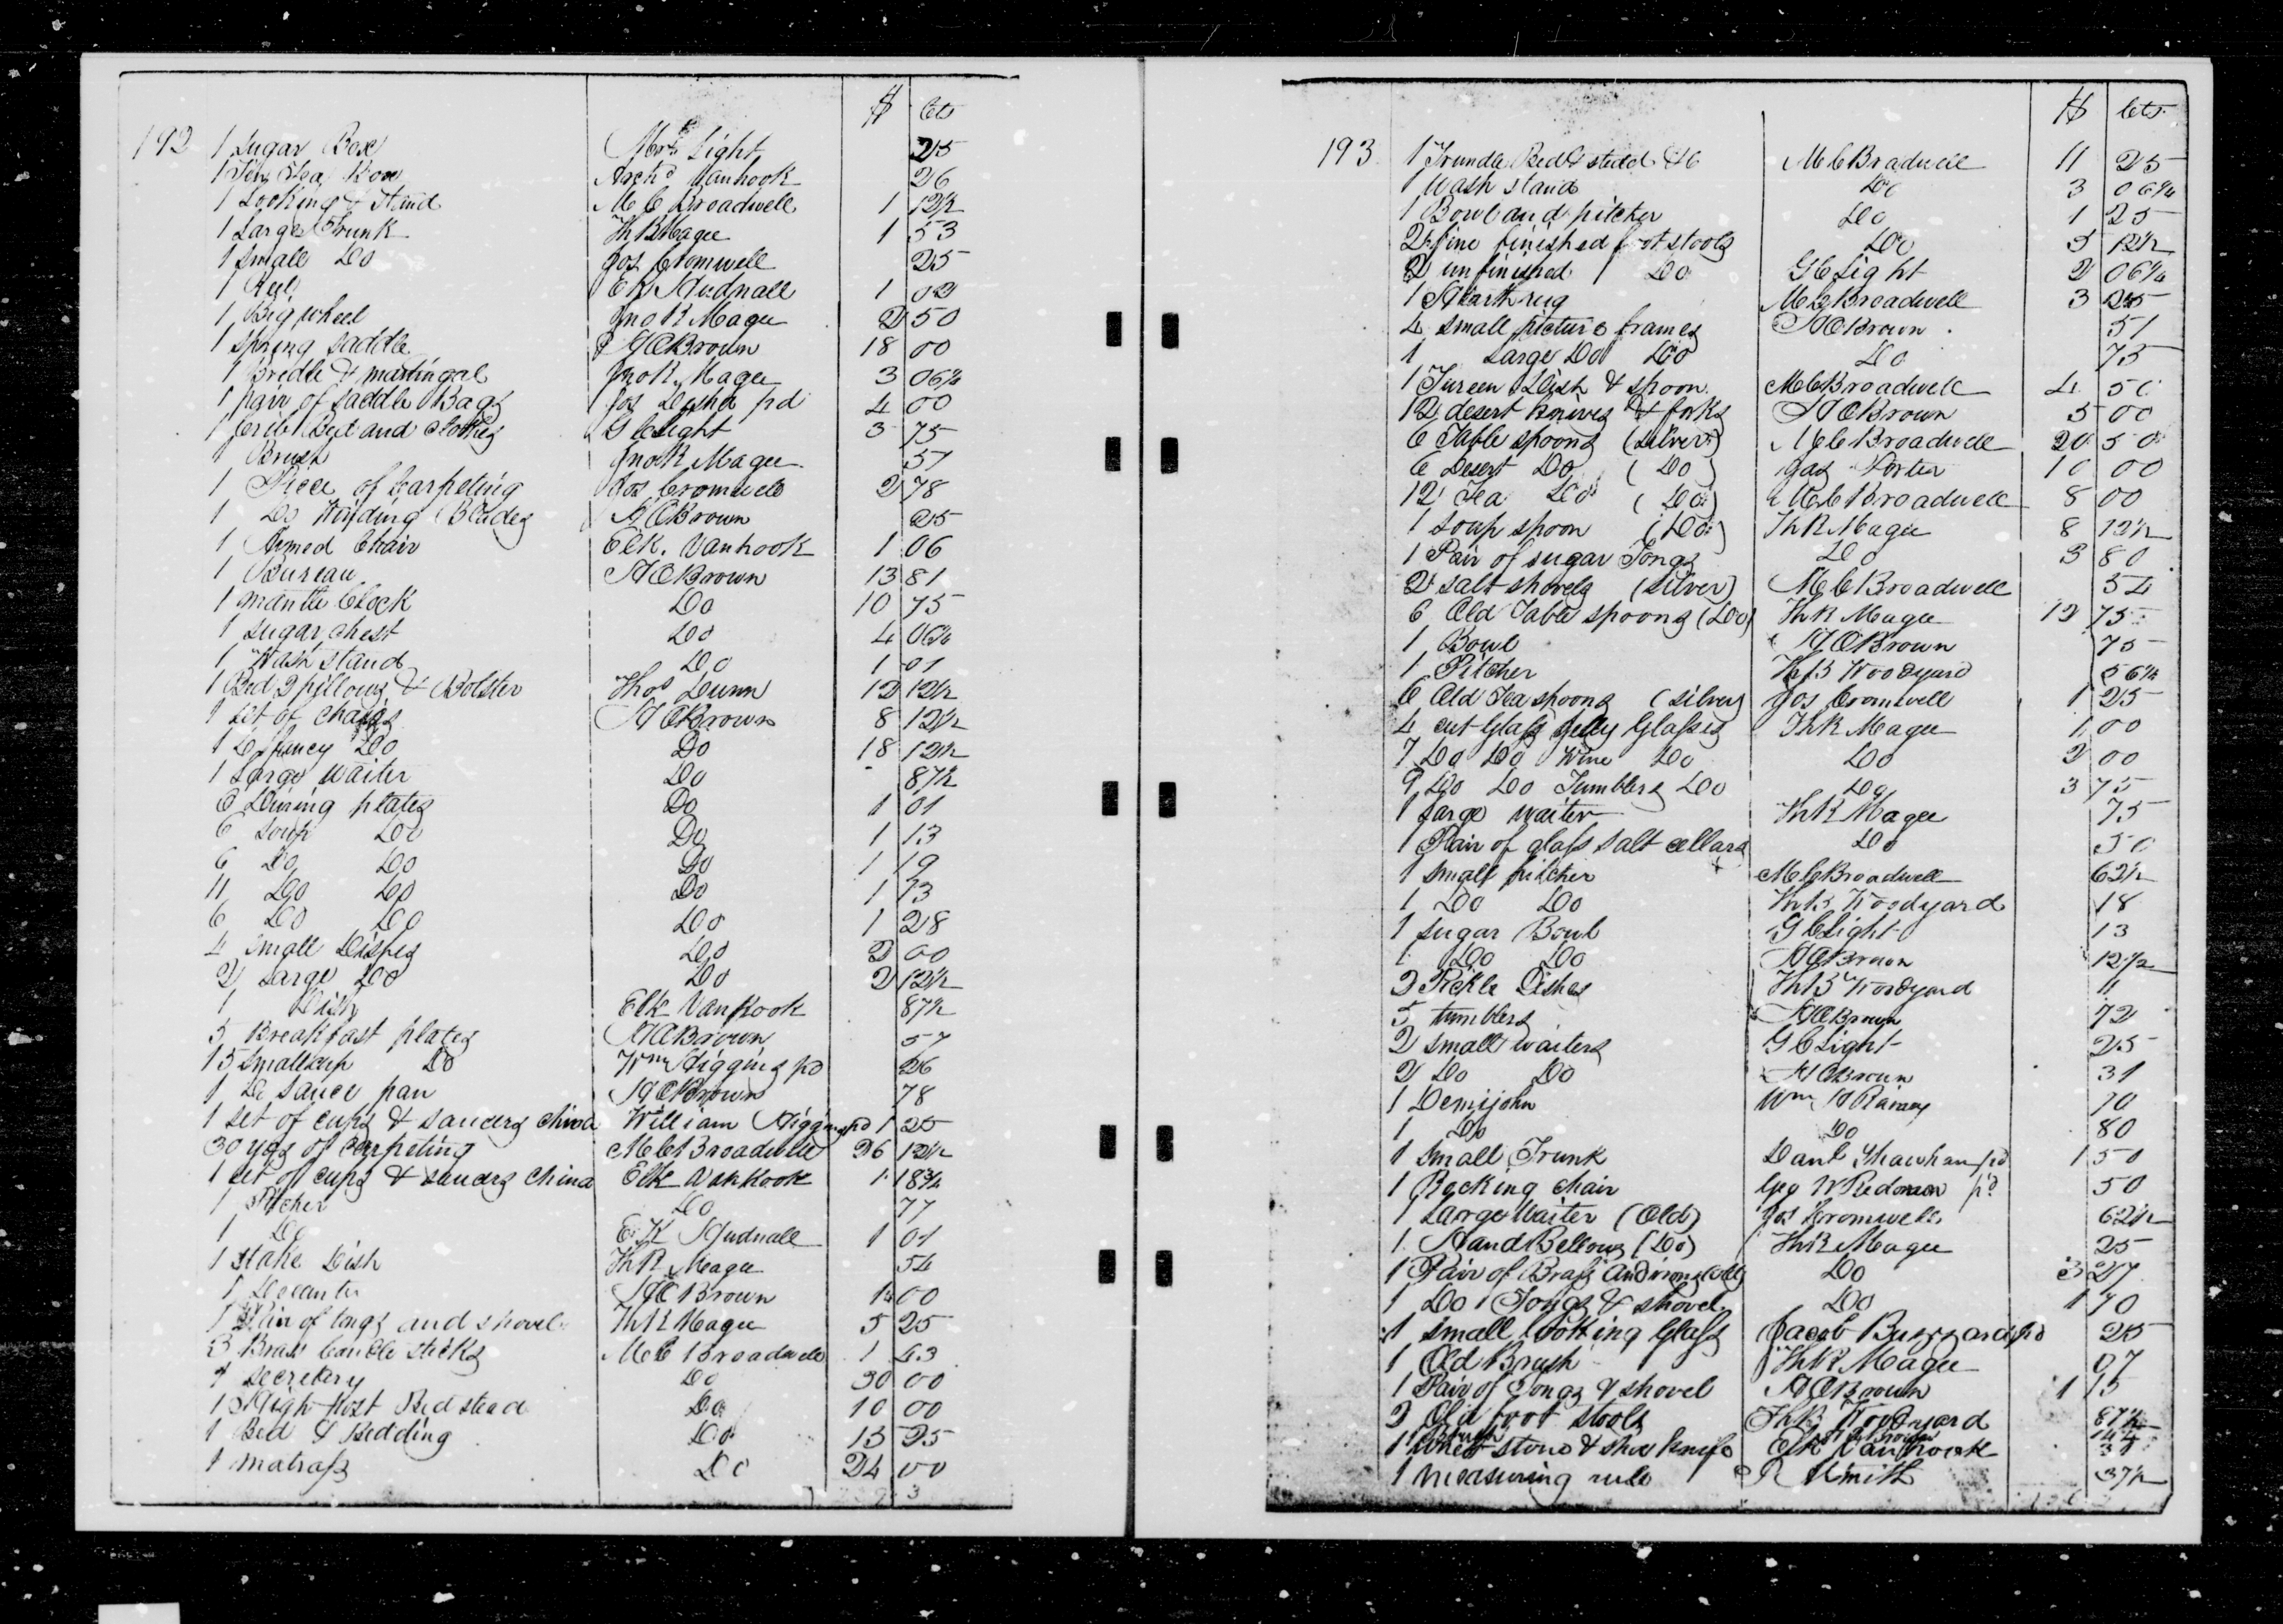 $ cts
192 1 Sugar Box Mrs Light 25
1 Tin Tea Box Archd Vanhook 26
1 Looking & Stand M C Broadwell 1 12½
1 Large Trunk Th R Magee 1 53
1 Small Do Jos Cromwell 25
1 Reel E K Hudnall 1 02
1 Big wheel Jno R Magee 2 50
1 spring saddle H C Brown 18 00
1 Bridle & martingal Jno R. Magee 3 06¼
1 pair of saddle Bags Jos Desha pd 4 00
1 Crib Bed and clothes G C Light 3 75
1 Brush Jno R Magee 37
1 Piece of Carpeting Jos Cromwell 2 78
1 Do Winding Blades H C Brown 25
1 Armed Chair Elk. Vanhook 1 06
1 Bureau H C Brown 13 81
1 mantle Clock Do 10 75
1 sugar chest Do 4 06¼
1 Wash stand Do 1 01
1 Bed 2 pillows & Bolster Thos Dunn 12 12½
1 set of chairs H C Brown 8 12½
1 Do fancy Do Do 18 12½
1 Large waiter Do 87½
6 Dining plates Do 1 01
6 soup Do Do 1 13
6 Do Do Do 1 19
11 Do Do Do 1 73
6 Do Do Do 1 28
4 small Dishes Do 2 00
2 Large Do Do 2 12½
1 Dish Elk Vanhook 87½
5 Breakfast plates H C Brown 57
15 small cup Do Wm Higgins pd 26
1 Do sauce pan H C Brown 78
1 set of cups & saucers china William Higgins pd 1 25
30 yds of carpeting M C Broadwell 26 12½
1 set of cups & saucers china Elk Vanhook 1 18¾
1 Pitcher Do 77
1 Do E K Hudnall 1 01
1 stake Dish Th R Magee 54
1 Decanter H C Brown 1 00
1 Pair of tongs and shovel Th R Magee 5 25
3 Brass Candle sticks M C Broadwell 1 43
1 secretery Do 30 00
1 High Post Bed stead Do 10 00
1 Bed & Bedding Do 15 25
1 matrass Do 24 00
$ cts
193 1 Trundle Bed & stedd &c M C Bradwell 11 25
1 Wash stand Do 3 06¼
1 Bowl and pitcher Do 1 25
2 fine finished foot stools Do 5 12½
2 unfinished Do G C Light 2 06¼
1 Hearth rug M C Broadwell 3 25
4 small picture frames H C Brown 51
1 Large Do Do Do 75
1 Tureen Dish & spoon M C Broadwell 4 50
12 desert knives & forks H C Brown 5 00
6 Table spoons (silver) M C Broadwell 20 50
6 Desert Do (Do) Jas Porter 10 00
12 Tea Do (Do) M C Broadwell 8 00
1 soup spoon (Do) Th R Magee 8 12½
1 Pair of sugar Tongs Do 3 80
2 salt shovels (silver) M C Broadwell 54
6 Old Table spoons (Do) Th R Magee 12 75
1 Bowl H C Brown 75
1 Pitcher Th B Woodyard 56¼
6 Old Tea spoons (silver) Jos Cromwell 1 25
4 cut Glass jelly Glasses Th R Magee 1 00
7 Do Do Wine Do Do 2 00
9 Do Do Tumblers Do Do 3 75
1 large waiter Th R Magee 75
1 Pair of glass salt cellars Do 50
1 small pitcher M C Broadwell 62½
1 Do Do Th B Woodyard 18
1 sugar Bowl G C Light 13
1 Do Do H C Brown 12½
2 Pickle Dishes Th B Woodyard 11
5 tumblers H C Brown 72
2 small waiters G C Light 25
2 Do Do H C Brown 31
1 Demijohn Wm H Rainey 70
1 Do Do 80
1 small Trunk Danl Shawhan pd 1 50
1 Rocking chair Geo W Redmon pd 50
1 Large Waiter (Old) Jos Cromwell 62½
1 Hand Bellows (Do) Th R Magee 25
1 Pair of Brass Andirons (old) Do 3 27
1 Do Tongs & shovel Do 1 70
1 small looking Glass Jacob Buzzard pd 25
1 Old Brush Th R Magee 07
1 Pair of Tongs & shovel H C Brown 1 15
2 Old foot stools Th B Woodyard 87½
1 whet stone & shoe knife Elk Vanhook 37
1 measuring rule R Smith 37½